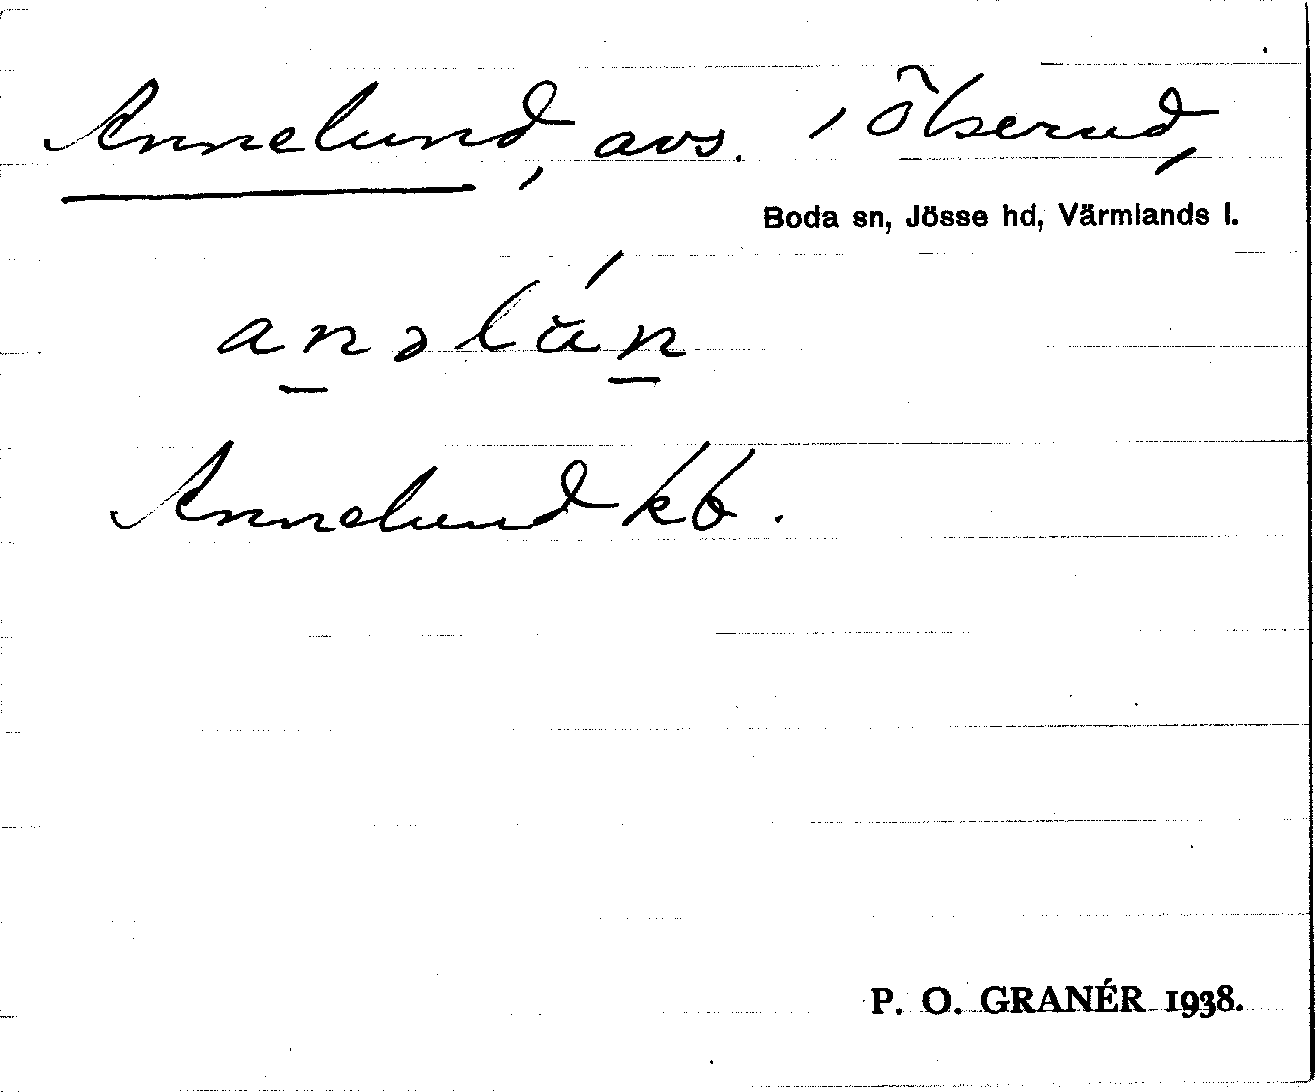 Annelund, avs. i Ölserud,
Boda sn, Jösse hd, Värmlands l.
Annelund kb.
P. O. GRANÉR 1938.